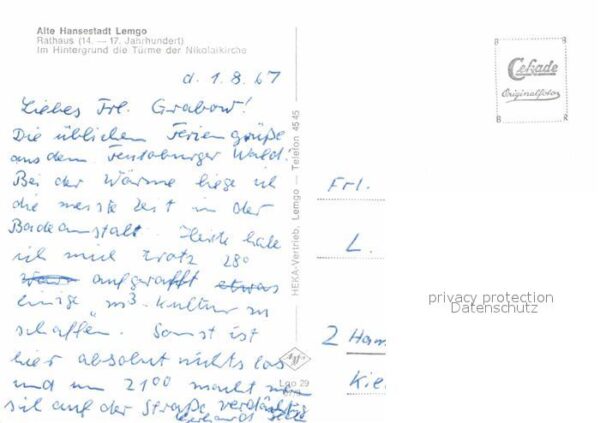 Alte Hansestadt Lemgo
Rathaus (14. — 17. Jahrhundert)
Im Hintergrund die Türme der Nikolaikirche
d. 1.8.67
Liebes Frl. Grabow!
Die üblichen Feriengrüße
aus dem Teutoburger Wald.
Bei der Wärme liege ich
die meiste Zeit in der
Badeanstalt. Heute habe
ich mich trotz 28°
aufgerafft etwas
einige m³ Kultur zu
schaffen. Sonst ist
hier absolut nichts los
und um 21⁰⁰ macht man
sich auf der Straße verdächtig
HEKA-Vertrieb, Lemgo — Telefon 45 45
Lgo 29
Cekade
Originalfoto
Frl.
L.
2 Ham
Kie
privacy protection
Datenschutz